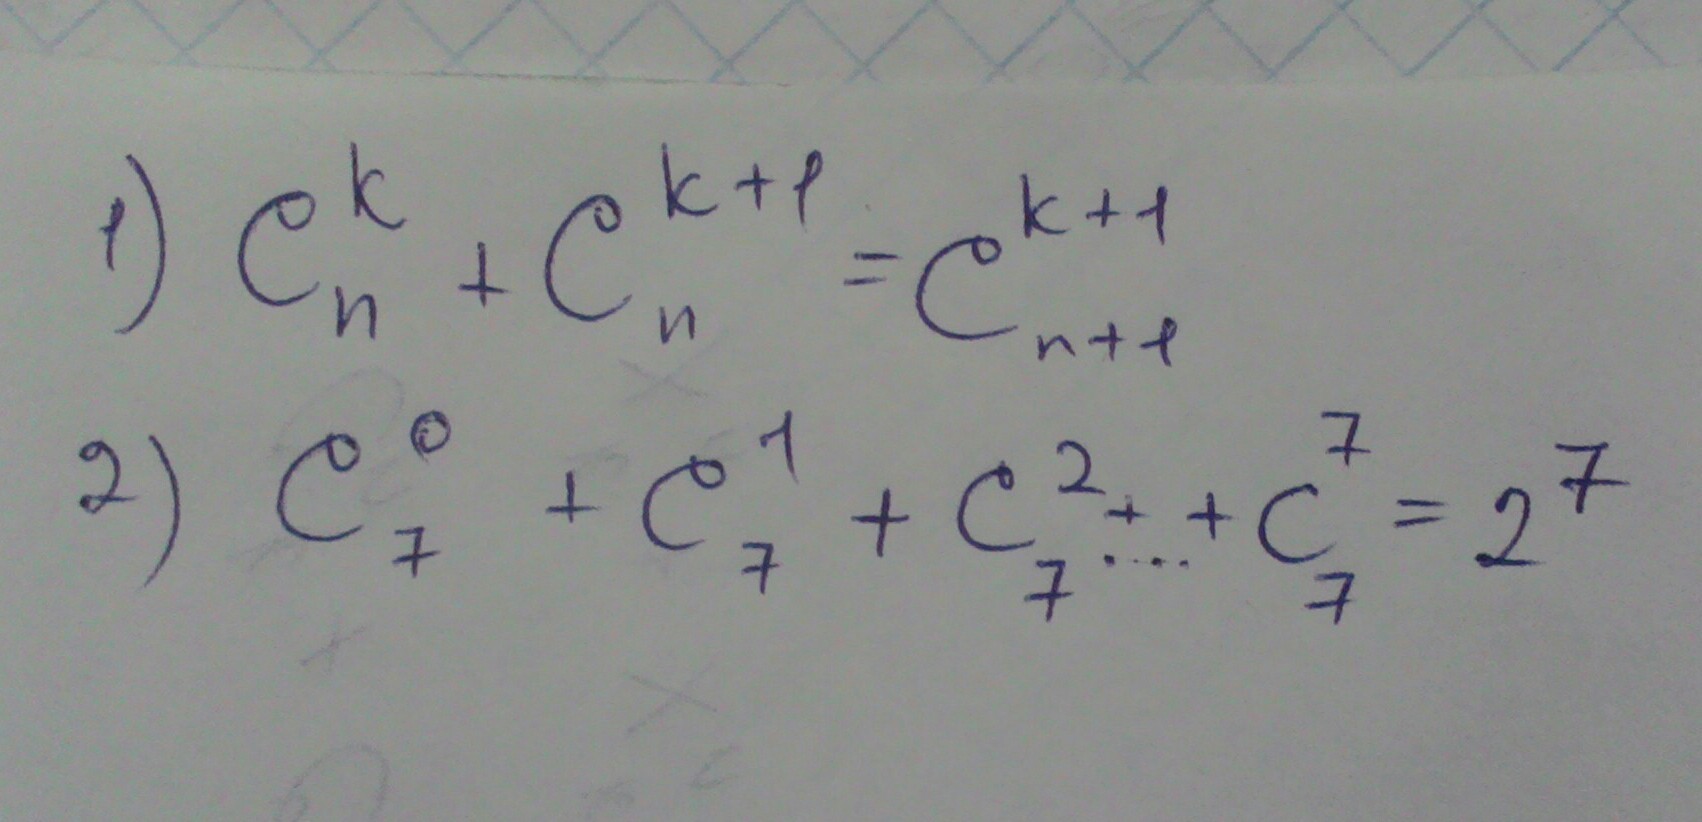 1) C_n^k + C_n^{k+1} = C_{n+1}^{k+1}
2) C_7^0 + C_7^1 + C_7^2 + .... + C_7^7 = 2^7